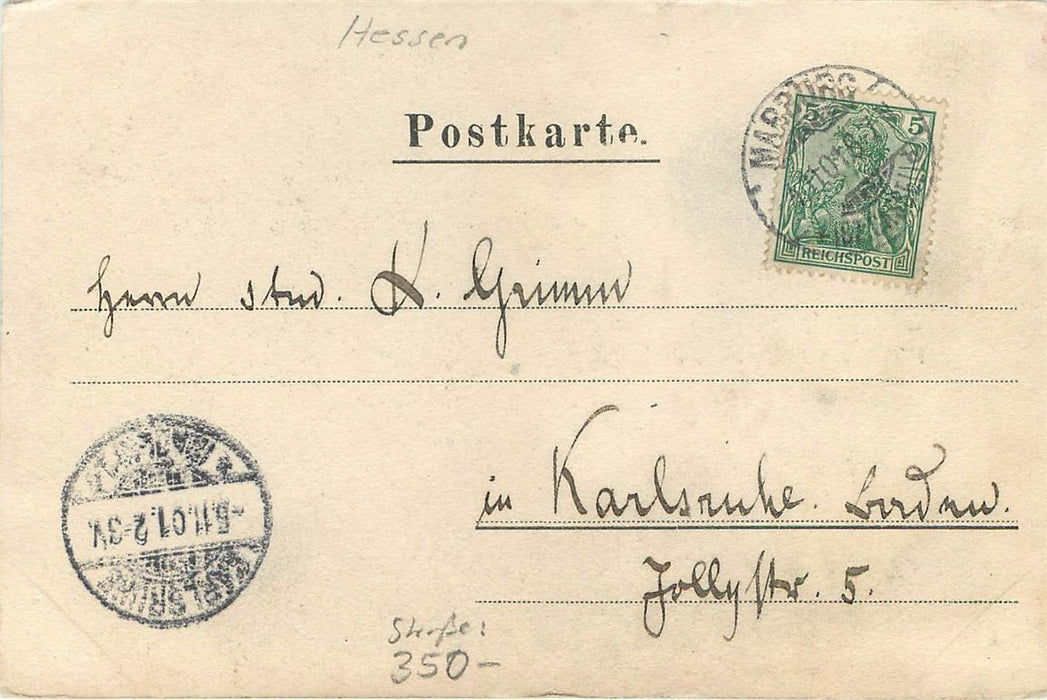 Hessen
Postkarte.
MARBURG
5 5
REICHSPOST
Herrn stud. K. Grimm
in Karlsruhe. Baden.
Jollystr. 5.
KARLSRUHE
-5.11.01.2-3V.
Straße:
350-